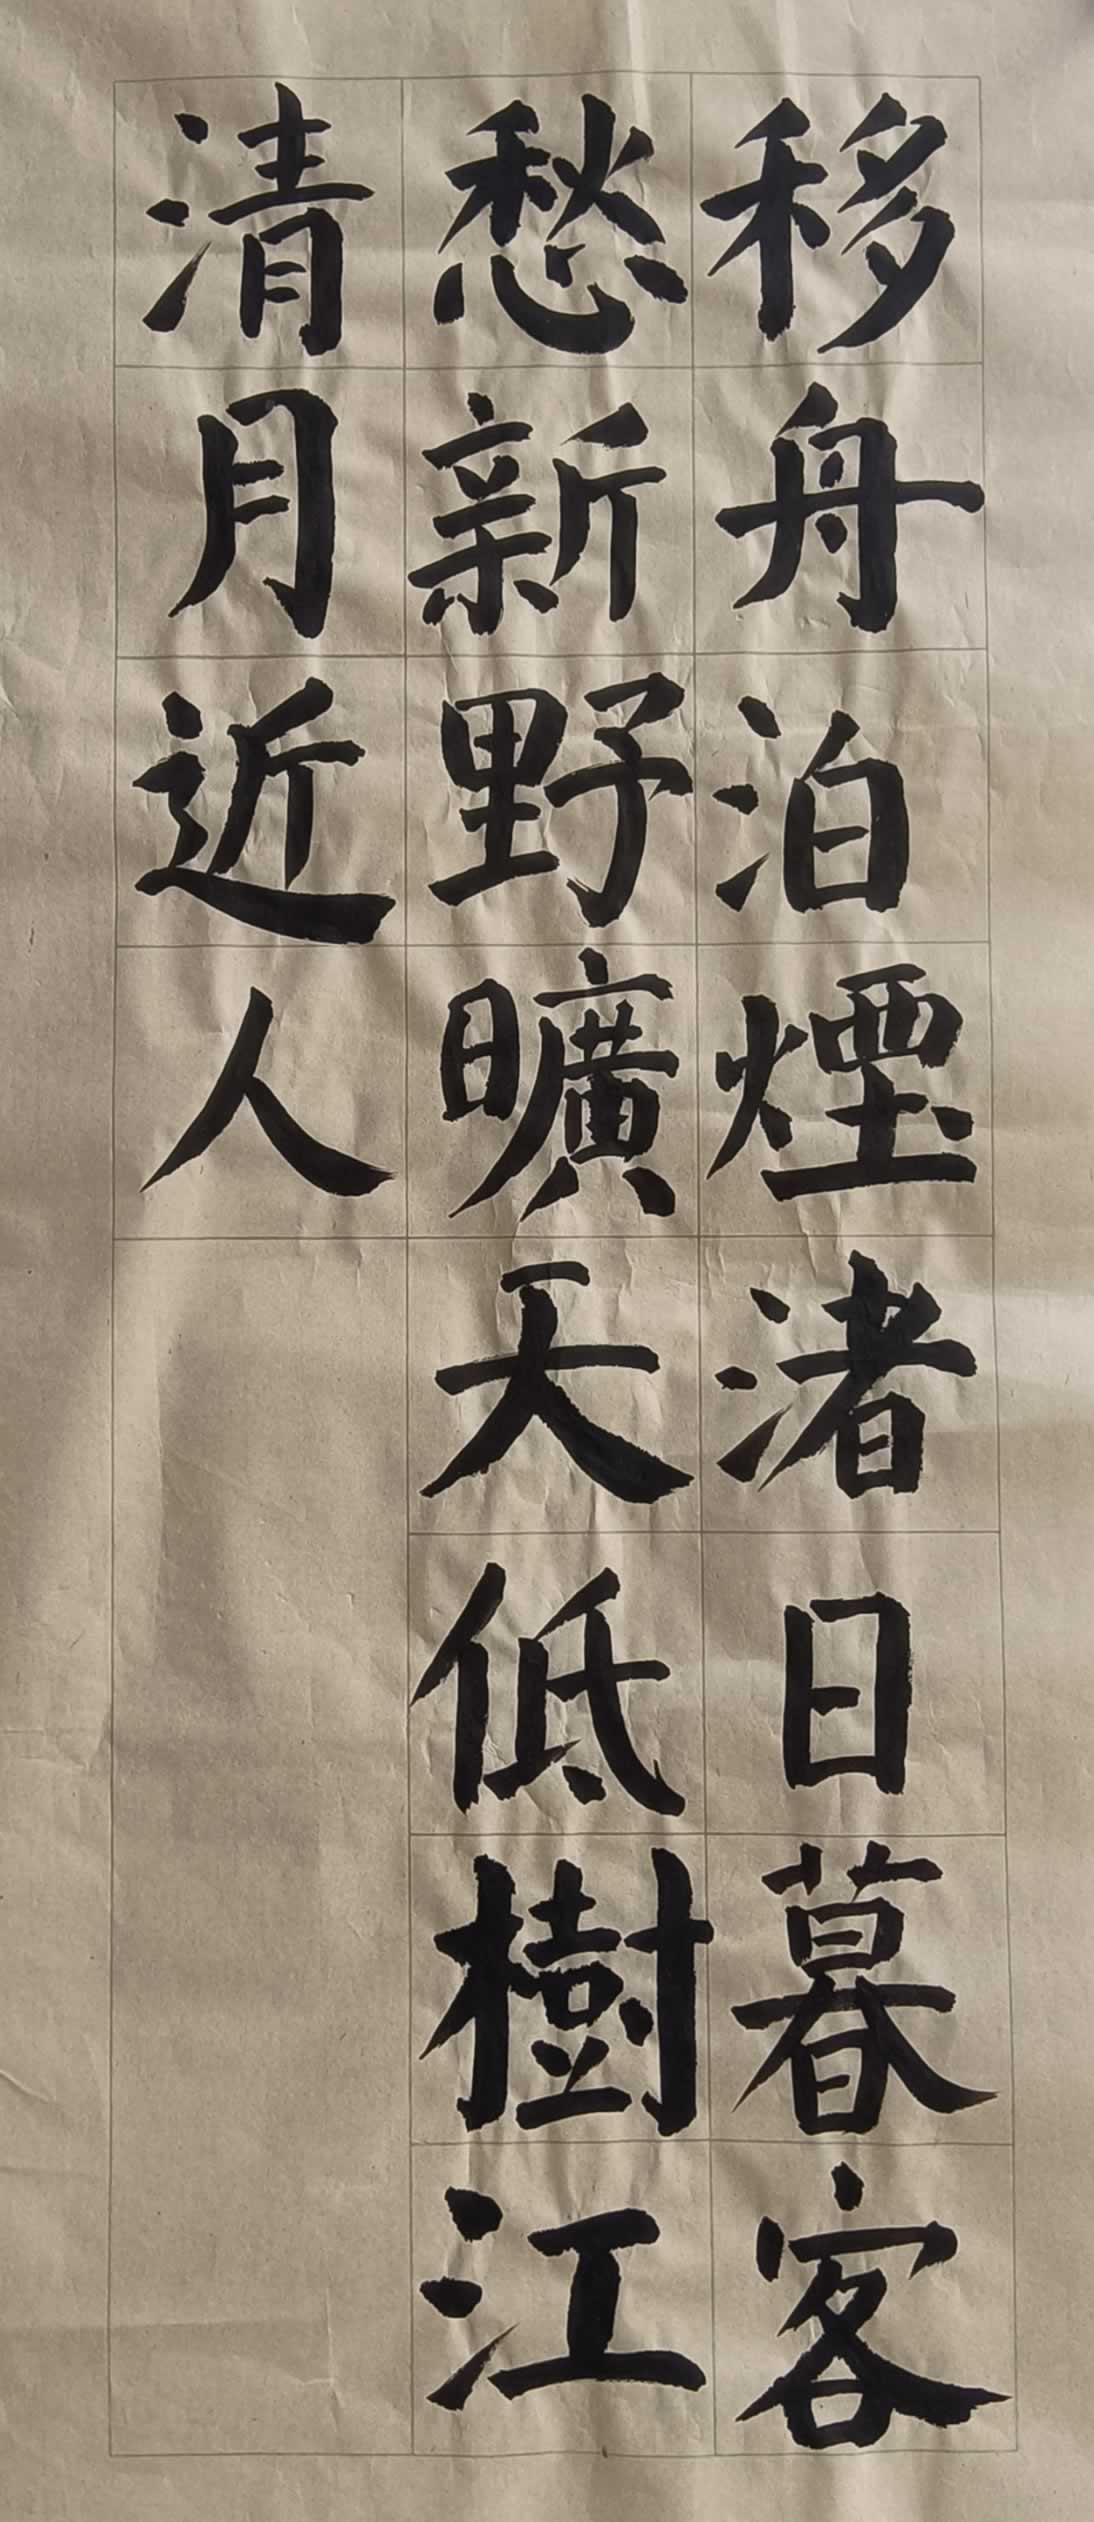 移舟泊煙渚日暮客
愁新野曠天低樹江
清月近人